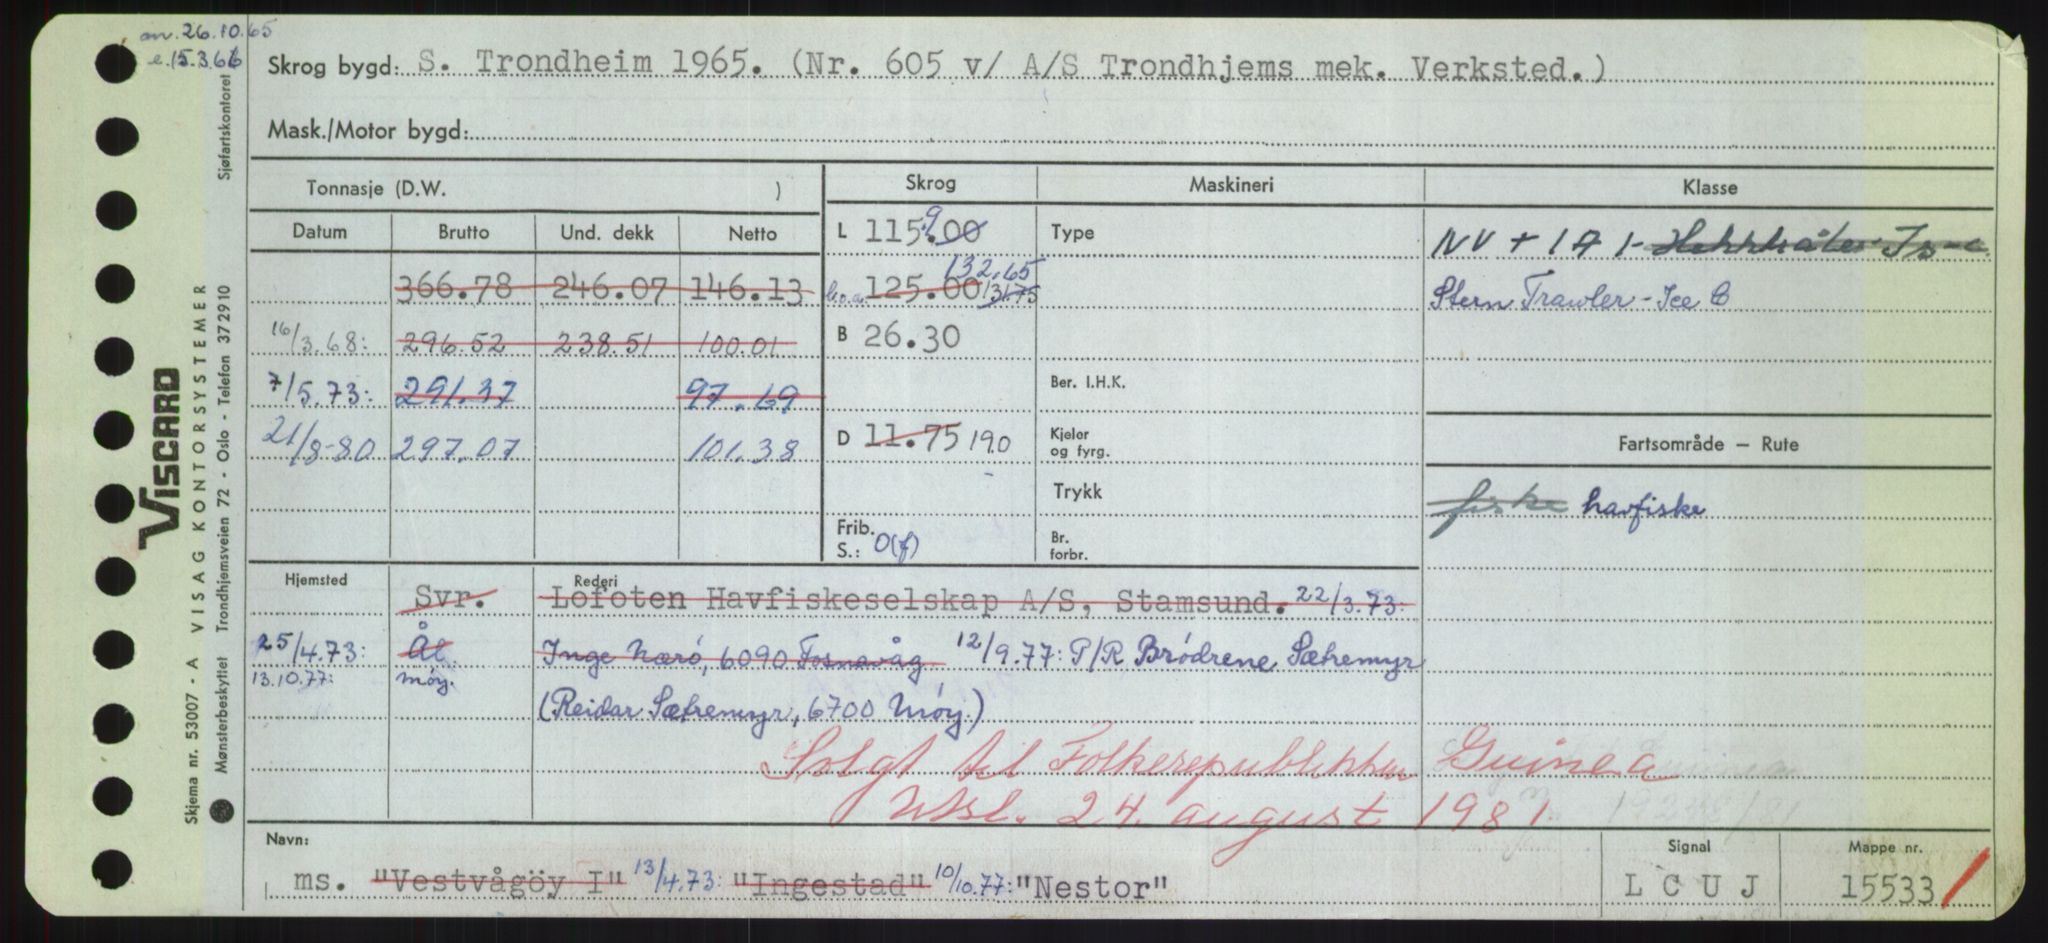 an. 26.10.65
e. 15.3.66
Skrog bygd: S. Trondheim 1965. (Nr. 605 v/ A/S Trondhjems mek. Verksted.)
Mask./Motor bygd:
Tonnasje (D.W. )
Skrog
Maskineri
Klasse
Datum Brutto Und. dekk Netto
366.78 246.07 146.13
16/3.68: 296.52 238.51 100.01
7/5.73: 291.37 97.69
21/8-80 297.07 101.38
L 115.00 9
132.65
l.o.a. 125.00 131.75
B 26.30
D 11.75 19.0
Frib.
S.: 0(f)
Type
Ber. I.H.K.
Kjeler
og fyrg.
Trykk
Br.
forbr.
NV + 1A1- Hekktråler Is-C
Stern Trawler - Ice C
Fartsområde – Rute
fiske havfiske
Hjemsted
Rederi
Svr. Lofoten Havfiskeselskap A/S, Stamsund. 22/3.73:
25/4.73: Ål. Inge Nærö, 6090 Fosnavåg 12/9.77: P/R Brödrene Sætremyr
13.10.77: Möy. (Reidar Sætremyr, 6700 Måy)
Solgt til Folkerepublikken Guinea
Utsl. 24. august 1981
Navn:
ms. "Vestvågöy I" 13/4.73: "Ingestad" 10/10.77: "Nestor"
Signal
L C U J
Mappe nr.
15533
VISCARD
Skjema nr. 53007 - A VISAG KONTORSYSTEMER
Mønsterbeskyttet Trondhjemsveien 72 - Oslo - Telefon 37 29 10 Sjøfartskontoret